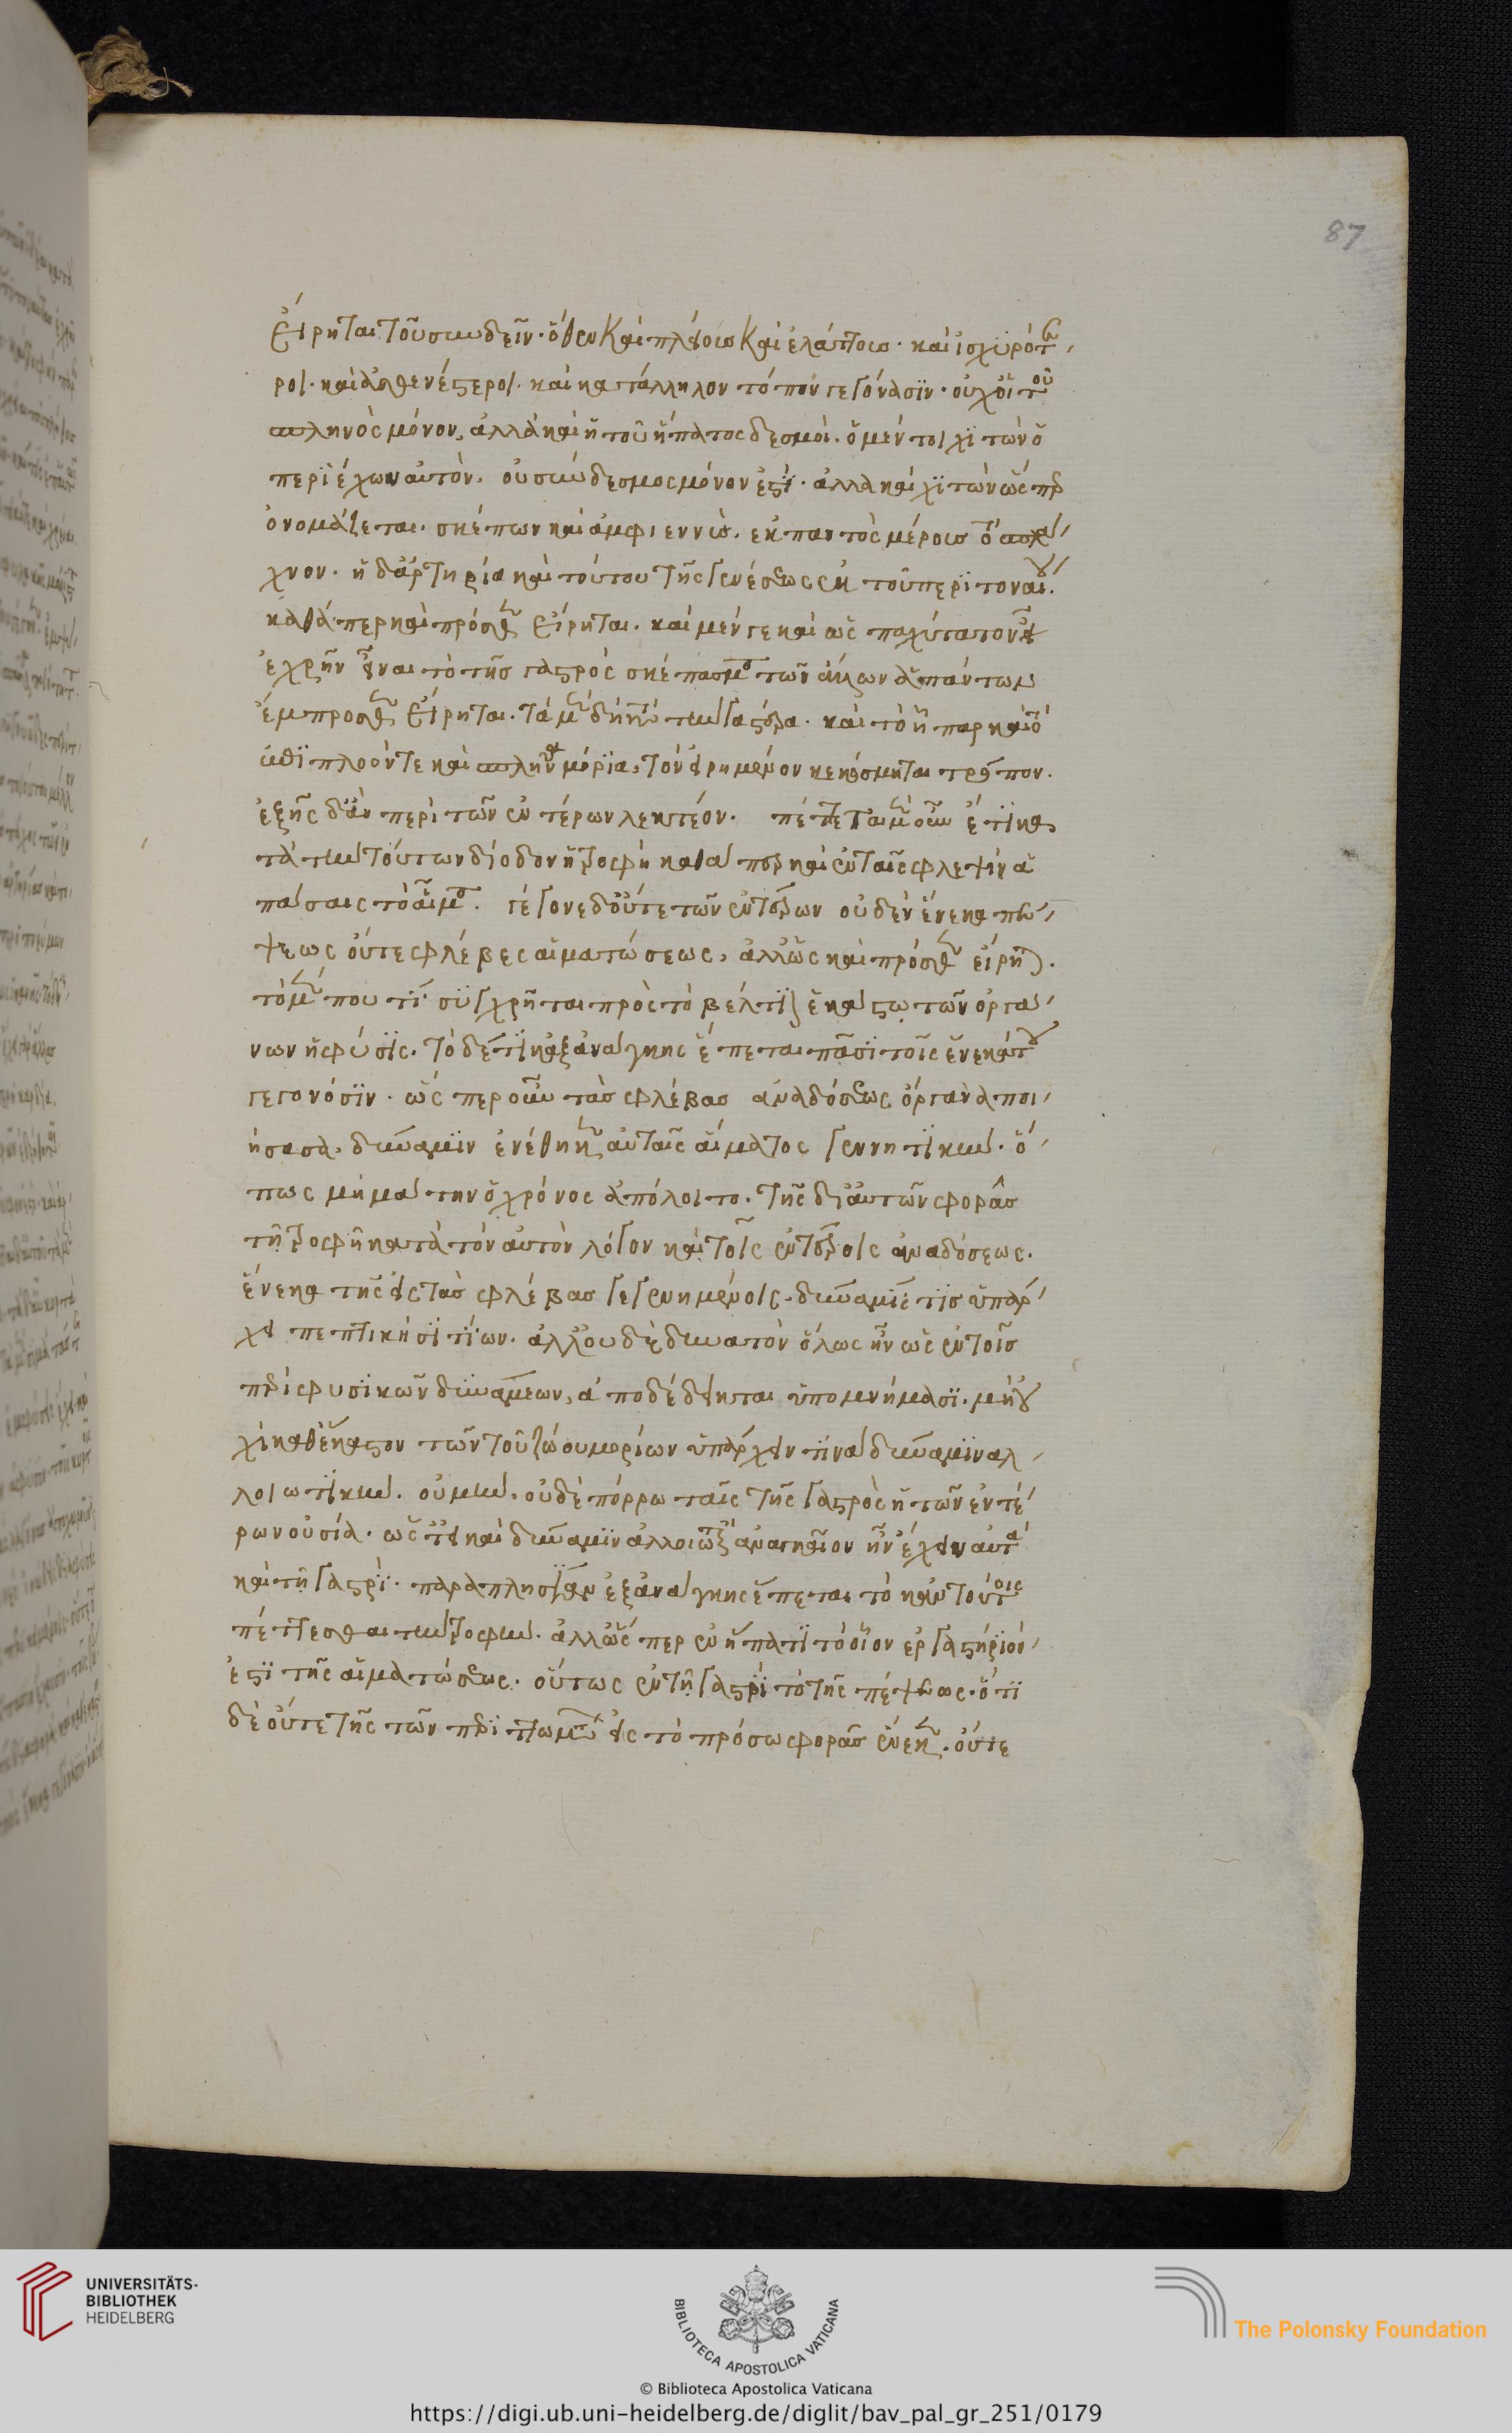 87
εἴρηται τοῦ συνδεῖν· ὅθεν καὶ πλείους καὶ ἐλάττους· καὶ ἰσχυρότε
ροι· καὶ ἀσθενέστεροι· καὶ κατάλληλον τόπον γεγόνασϊν· οὐχ οἱ τοῦ
σπληνὸς μόνον, ἀλλὰ καὶ ἡ τοῦ ἥπατος δεσμοί. ὁ μέν τοι χϊτὼν ὁ
περϊέχων αὐτὸν, οὐ σύνδεσμος μόνον ἐστϊ· ἀλλὰ καὶ χϊτὼν ὥσπερ
ὀνομάζεται. σκέπων καὶ ἀμφιεννὺς. ἐκ παντὸς μέρους τὸ σπλά
χνον. ἡ δ' ἀρτηρία καὶ τούτου τῆς γενέσεως ἐκ τοῦ περϊτοναίου.
καθάπερ καὶ πρόσθεν εἴρηται. καὶ μέν γε καὶ ὡς παχύτατον
ἐχρῆν εἶναι τὸ τῆς γαστρὸς σκέπασμα τῶν ἄλλων ἁπάντων
ἔμπροσθεν εἴρηται. τὰ μὲν δὴ κατὰ τὴν γαστέρα· καὶ τὸ ἧπαρ καὶ τὸ
ἐπϊπλοόν τε καὶ σπλῆνα μόρϊα, τὸν εἰρημένον κεκόσμηται τρόπον.
ἑξῆς δ' ἂν περὶ τῶν ἐντέρων λεκτέον. πέττεται μὲν οὖν ἔτϊ κα
τὰ τὴν τούτων δίοδον ἡ τροφὴ καθάπερ καὶ ἐν ταῖς φλεψὶν ἁ
πάσαις τὸ αἷμα. γέγονε δ' οὔτε τῶν ἐντέρων οὐδὲν ἕνεκα πέ
ψεως οὔτε φλέβες αἱματώσεως, ἀλλ' ὡς καὶ πρόσθεν εἴρηται.
τὸ μέν που τϊ συγχρῆται πρὸς τὸ βέλτϊον ἑκάστῳ τῶν ὀργά
νων ἡ φύσϊς. τὸ δέ τϊ κἀξ ἀνάγκης ἕπεται πᾶσϊ τοῖς ἕνεκά του
γεγονόσϊν. ὥσπερ οὖν τὰς φλέβας ἀναδόσεως ὄργανα ποι
ήσασα. δύναμϊν ἐνέθηκεν αὐταῖς αἵματος γεννητϊκὴν. ὅ
πως μὴ μάτην ὁ χρόνος ἀπόλοιτο. τῆς δι' αὐτῶν φορᾶς
τῇ τροφῇ κατὰ τὸν αὐτὸν λόγον καὶ τοῖς ἐντέροις ἀναδόσεως.
ἕνεκα τῆς εἰς τὰς φλέβας γεγενημένοις. δύναμϊς τϊς ὑπάρ
χει πεπτικὴ σϊτϊων. ἀλλ' οὐδὲ δυνατὸν ὅλως ἦν ὡς ἐν τοῖς
περὶ φυσϊκῶν δυνάμεων, ἀποδέδεικται ὑπομνήμασϊ. μὴ οὐ
χὶ καθ' ἕκαστον τῶν τοῦ ζώου μορίων ὑπάρχειν τϊνα δύναμϊν ἀλ
λοιωτϊκὴν. οὐ μὴν. οὐδὲ πόρρω ταῖς τῆς γαστρὸς ἡ τῶν ἐντέ
ρων οὐσία. ὥστε καὶ δύναμϊν ἀλλοιωτ ἀναγκαῖον ἦν ἔχειν αὐτὰ
καὶ τῇ γαστρϊ. παραπλησϊαν ἐξ ἀνάγκης ἕπεται τὸ κἀν τούτοις
πέττεσθαι τὴν τροφὴν. ἀλλ' ὥσπερ ἐν ἥπατϊ τὸ οἷον ἐργαστήρϊόν
ἐστϊ τῆς αἱματώσεως. οὕτως ἐν τῇ γαστρϊ τὸ τῆς πέψεως. ὅτϊ
δὲ οὔτε τῆς τῶν περϊττωμάτων εἰς τὸ πρόσω φορᾶς ἕνεκεν. οὔτε
UNIVERSITÄTS-
BIBLIOTHEK
HEIDELBERG
BIBLIOTECA APOSTOLICA VATICANA
The Polonsky Foundation
© Biblioteca Apostolica Vaticana
https://digi.ub.uni-heidelberg.de/diglit/bav_pal_gr_251/0179